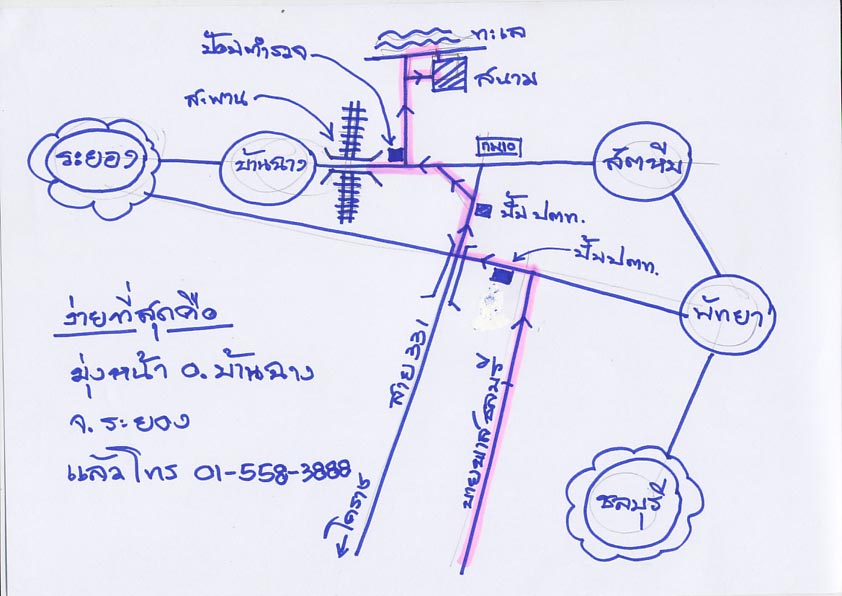 ทะเล
ป้อมตำรวจ
สนาม
สะพาน
กม10
ระยอง
บ้านฉาง
สัตหีบ
ปั๊ม ปตท.
ปั๊ม ปตท.
พัทยา
ง่ายที่สุดคือ
มุ่งหน้า อ. บ้านฉาง
จ. ระยอง
แล้วโทร 01-558-3888
สาย 331
บายพาส ชลบุรี
ชลบุรี
โคราช